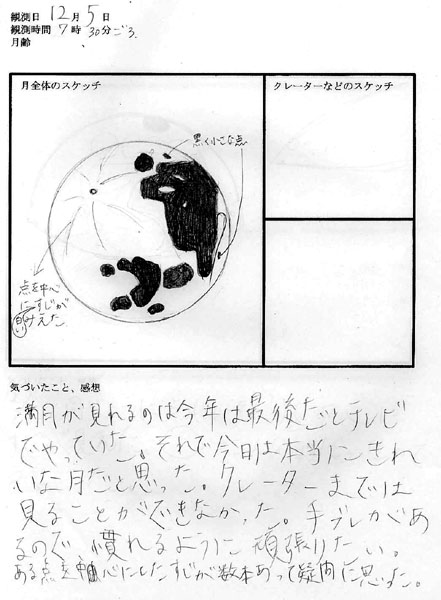 観測日 12月 5日
観測時間 7時 30分ごろ.
月齢
月全体のスケッチ
クレーターなどのスケッチ
黒く小さな点
点を中心
にすじが
白い
みえた
気づいたこと、感想
満月が見れるのは今年は最後だとテレビ
でやっていた。それで今日は本当にきれ
いな月だと思った。クレーターまでは
見ることができなかった。手ブレがあ
るので、慣れるように頑張りたい。
ある点を中心にしたすじが数本あって疑問に思った。